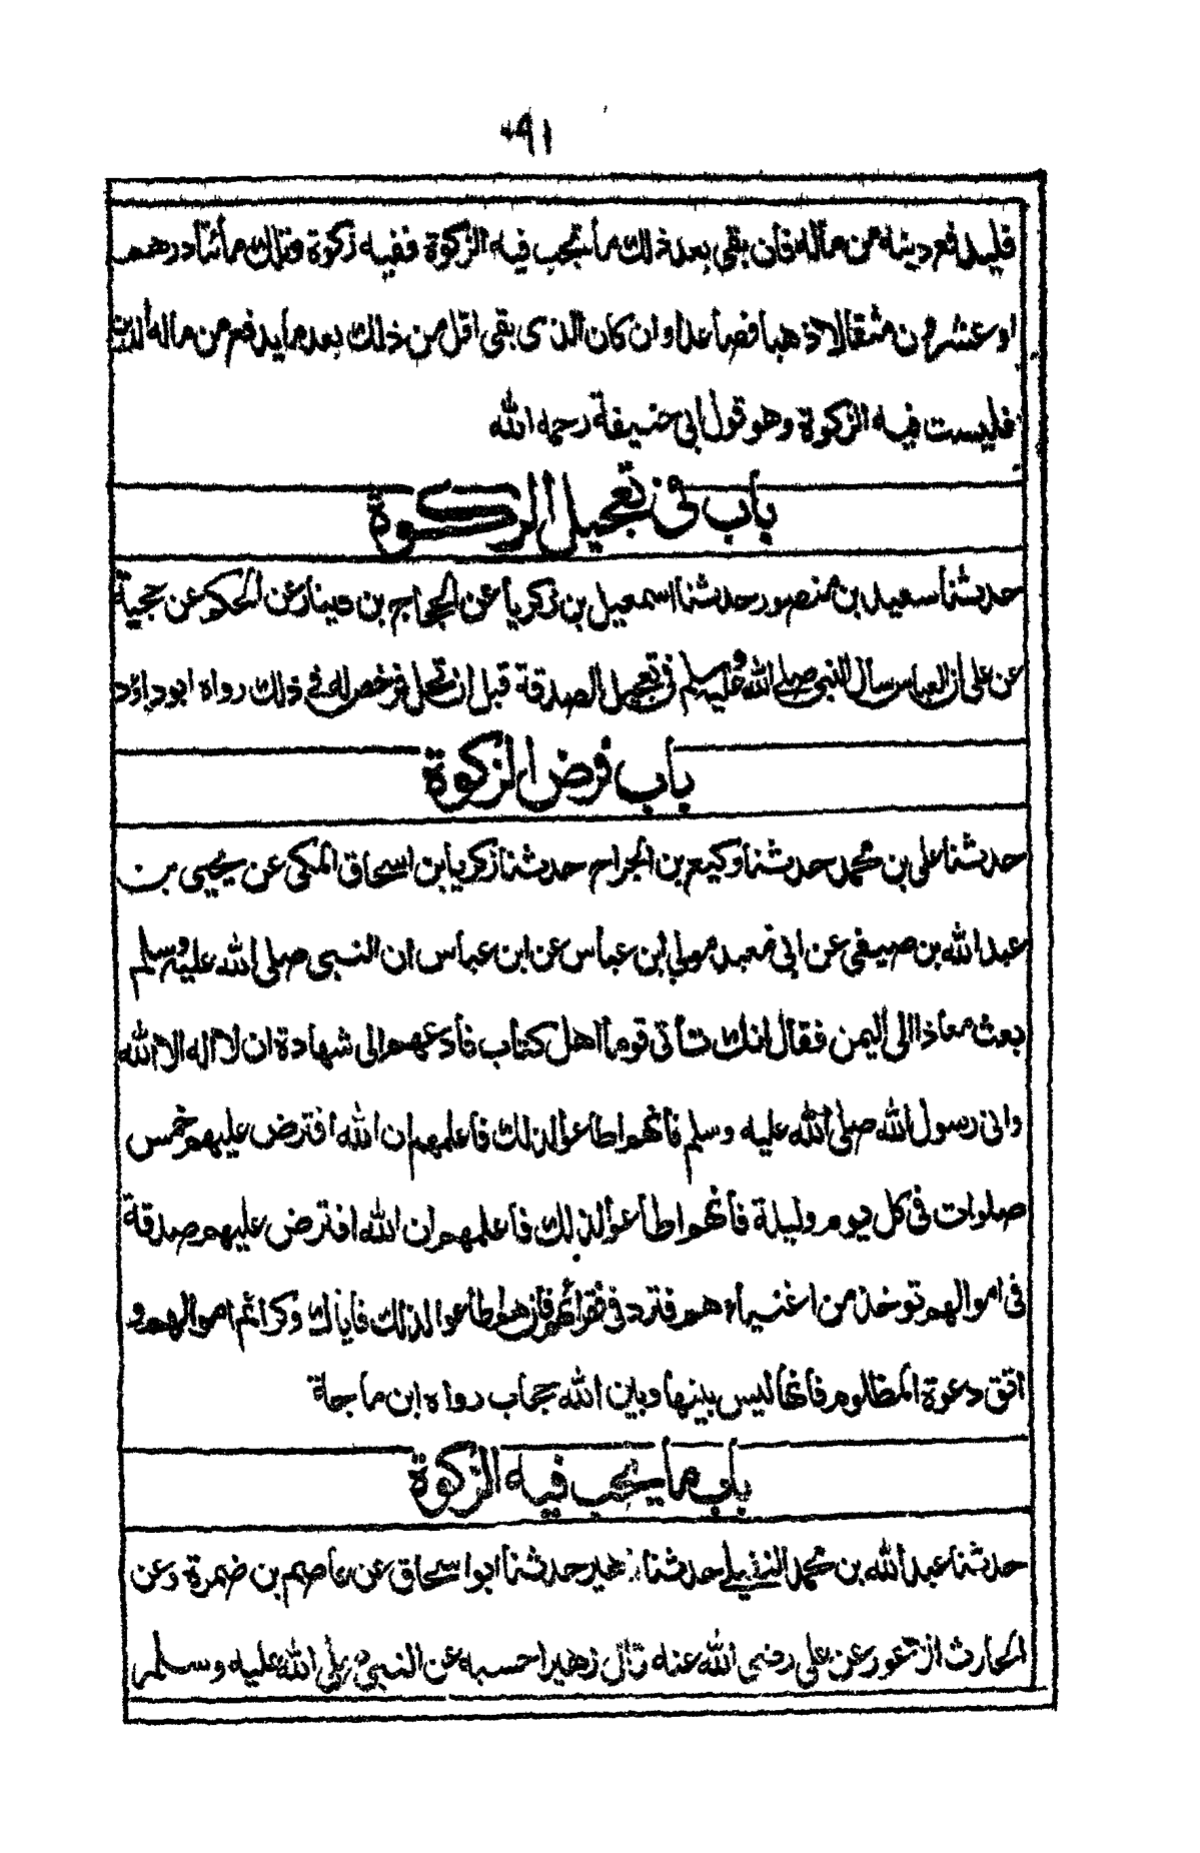 ١٩٠
فليدفع دينه من ماله فان بقى بعد ذلك ما تجب فيه الزكوة ففيه زكوة وذلك مائتا درهم
او عشرون مثقالا ذهبا فصاعدا وان كان الذى بقى اقل من ذلك بعد ما يدفع من ماله الدين
فليست فيه الزكوة وهو قول ابى حنيفة رحمه الله
باب فى تعجيل الزكوة
حدثنا سعيد بن منصور حدثنا اسمعيل بن زكريا عن الحجاج بن دينار عن الحكم عن حجية
عن على ان العباس سأل النبى صلى الله عليه وسلم فى تعجيل الصدقة قبل ان تحل فرخص له فى ذلك رواه ابو داؤد
باب فرض الزكوة
حدثنا على بن محمد حدثنا وكيع بن الجراح حدثنا زكريا بن اسحاق المكى عن يحيى بن
عبد الله بن صيفى عن ابى معبد مولى ابن عباس عن ابن عباس ان النبى صلى الله عليه وسلم
بعث معاذا الى اليمن فقال انك تأتى قوما اهل كتاب فادعهم الى شهادة ان لا اله الا الله
وانى رسول الله صلى الله عليه وسلم فانهم اطاعوا لذلك فاعلمهم ان الله افترض عليهم خمس
صلوات فى كل يوم وليلة فانهم اطاعوا لذلك فاعلمهم ان الله افترض عليهم صدقة
فى اموالهم توخذ من اغنياءهم فترد فى فقرائهم فان هم اطاعوا لذلك فاياك وكرائم اموالهم و
اتق دعوة المظلوم فانها ليس بينها وبين الله حجاب رواه ابن ماجة
باب ما يجب فيه الزكوة
حدثنا عبد الله بن محمد النفيلى حدثنا زهير حدثنا ابو اسحاق عن عاصم بن ضمرة وعن
الحارث الاعور عن على رضى الله عنه قال زهير احسبه عن النبى صلى الله عليه وسلم